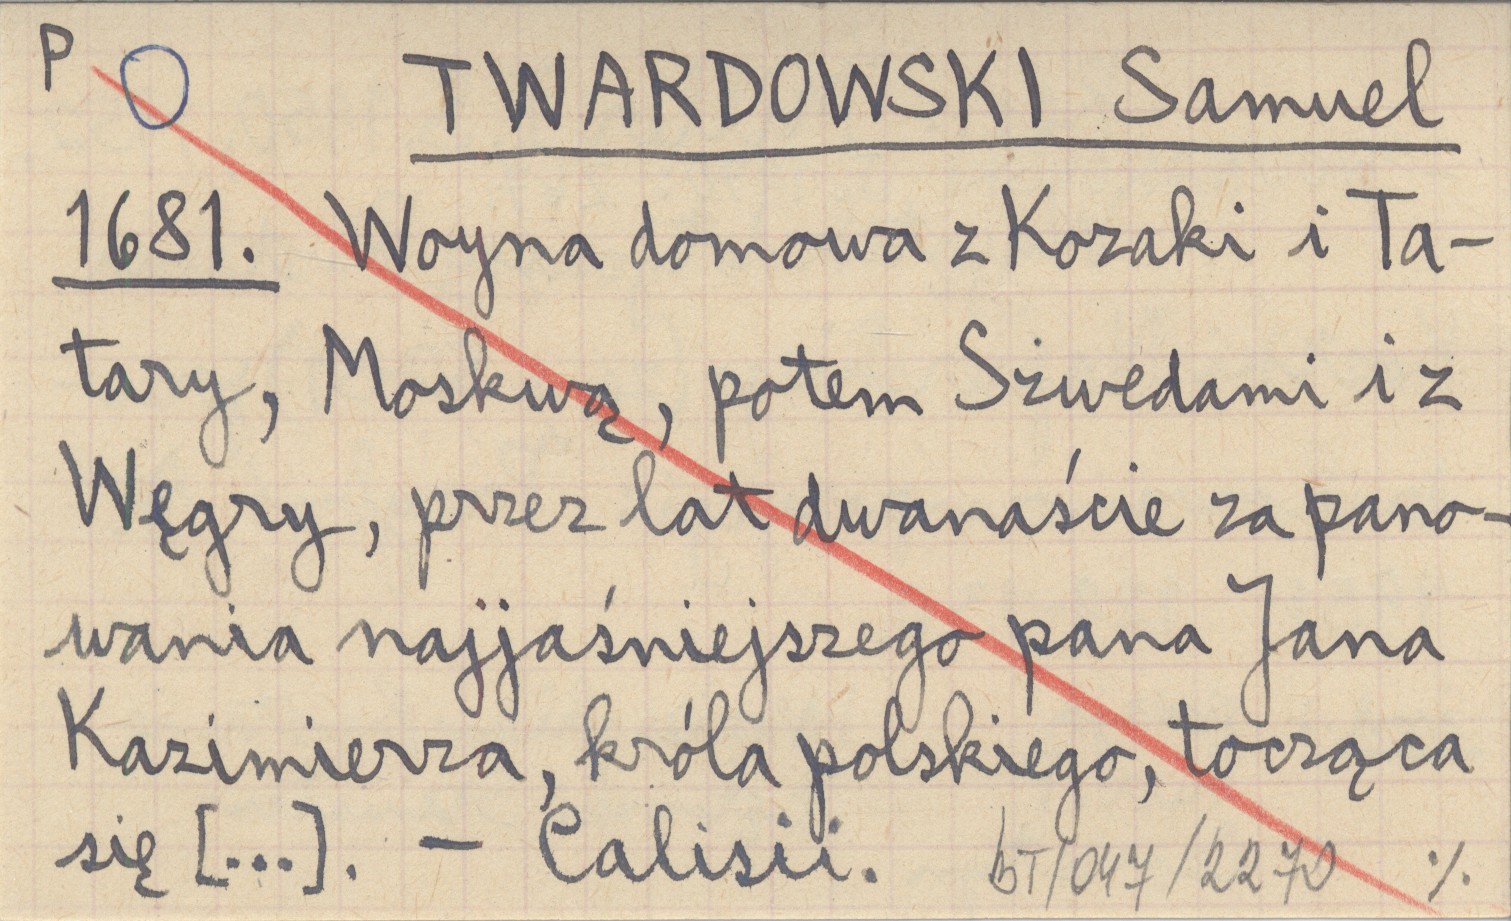 P O TWARDOWSKI Samuel
1681. Woyna domowa z Kozaki i Ta-
tary, Moskwą, potem Szwedami i z
Węgry, przez lat dwanaście za pano-
wania najjaśniejszego pana Jana
Kazimierza, króla polskiego, tocząca
się [...]. – Calisii. bT/047/2270 ·/.